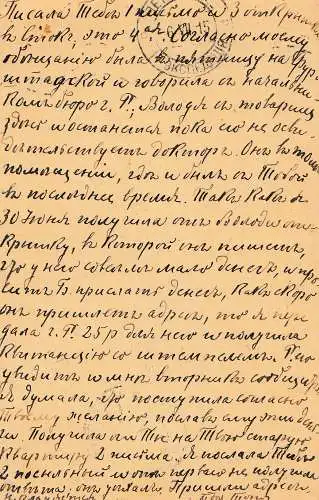 Писала Тебѣ 1 письмо и 3 открытки
въ Омскъ, это 4ая. Согласно моему
обѣщанію была въ пятницу на Фур-
штадской и говорила съ начальни-
комъ бюро г. П., Володя съ товарищ.
здѣсь и останется пока его не осви-
дѣтельствуетъ докторъ. Онъ въ томъ
помѣщеніи, гдѣ и былъ съ Тобой
въ послѣднее время. Такъ какъ я
30 Іюня получила отъ Володи от-
крытку, въ которой онъ пишетъ,
что у него совсѣмъ мало денегъ, и про-
ситъ прислать денегъ, какъ скоро
онъ пришлетъ адресъ, то я пере
дала г. П. 25 р для него и получила
квитанцію со штемпелемъ. Его
увидитъ и мнѣ вторникъ сообщ
Я думала, что поступила согласно
Твоему желанію, пославъ ему эти день
ги. Получилъ ли Ты на Твою старую
квартиру 2 письма. Я послала Тебѣ
2 посыльный и отъ перваго не получила
отвѣта, онъ уѣхалъ. Пришли адресъ